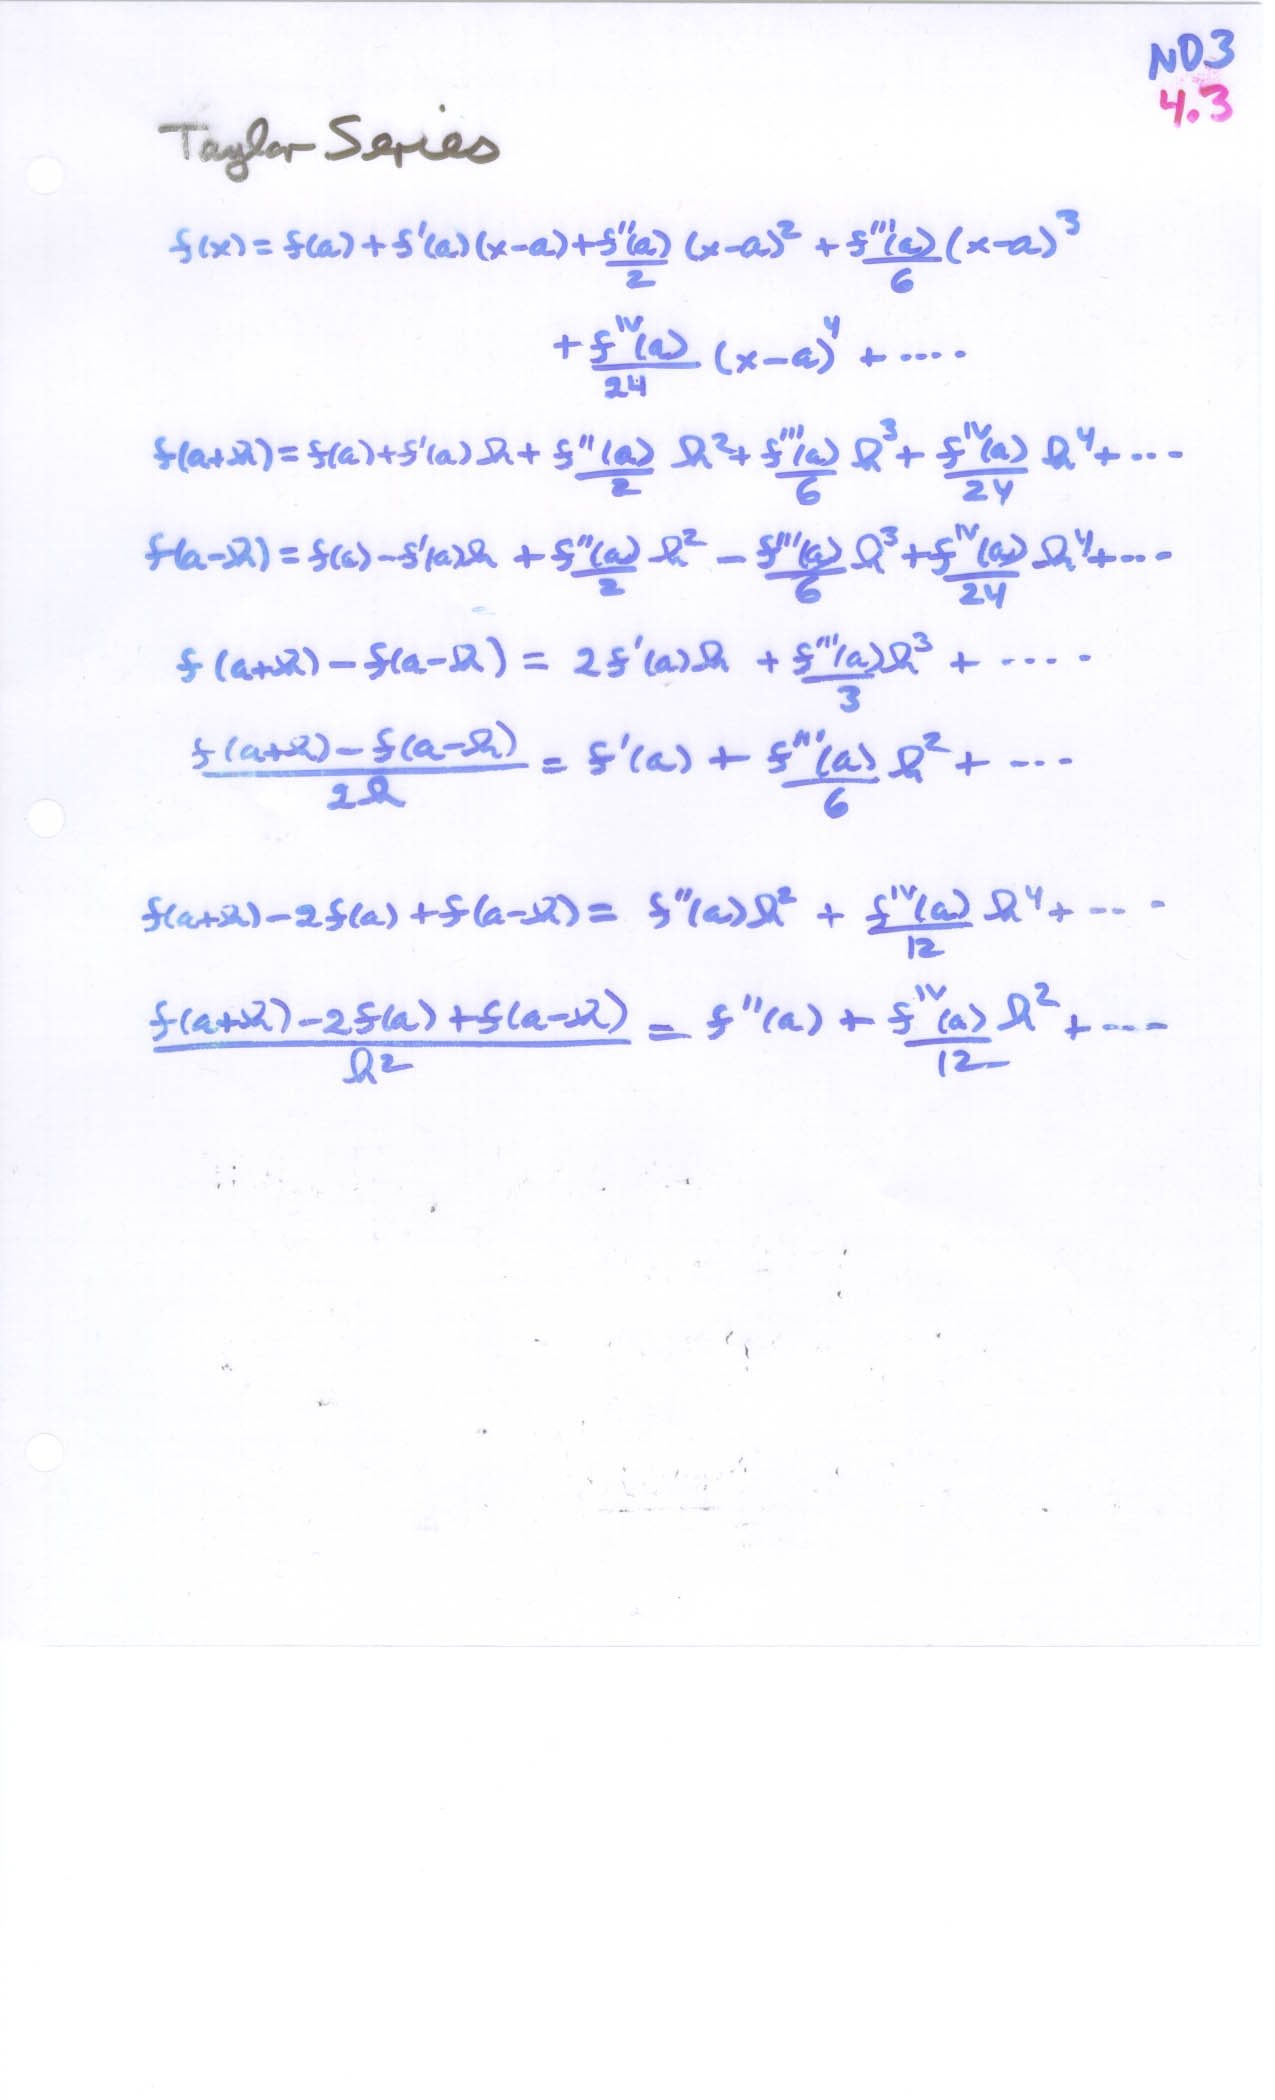 ND3
4.3
Taylor Series
f(x) = f(a) + f'(a)(x-a) + f''(a)/2 (x-a)^2 + f'''(a)/6 (x-a)^3
+ f^IV(a)/24 (x-a)^4 + ....
f(a+h) = f(a) + f'(a)h + f''(a)/2 h^2 + f'''(a)/6 h^3 + f^IV(a)/24 h^4 + ...
f(a-h) = f(a) - f'(a)h + f''(a)/2 h^2 - f'''(a)/6 h^3 + f^IV(a)/24 h^4 + ...
f(a+h) - f(a-h) = 2f'(a)h + f'''(a)/3 h^3 + ....
f(a+h) - f(a-h)/2h = f'(a) + f'''(a)/6 h^2 + ...
f(a+h) - 2f(a) + f(a-h) = f''(a)h^2 + f^IV(a)/12 h^4 + ...
f(a+h) - 2f(a) + f(a-h)/h^2 = f''(a) + f^IV(a)/12 h^2 + ...